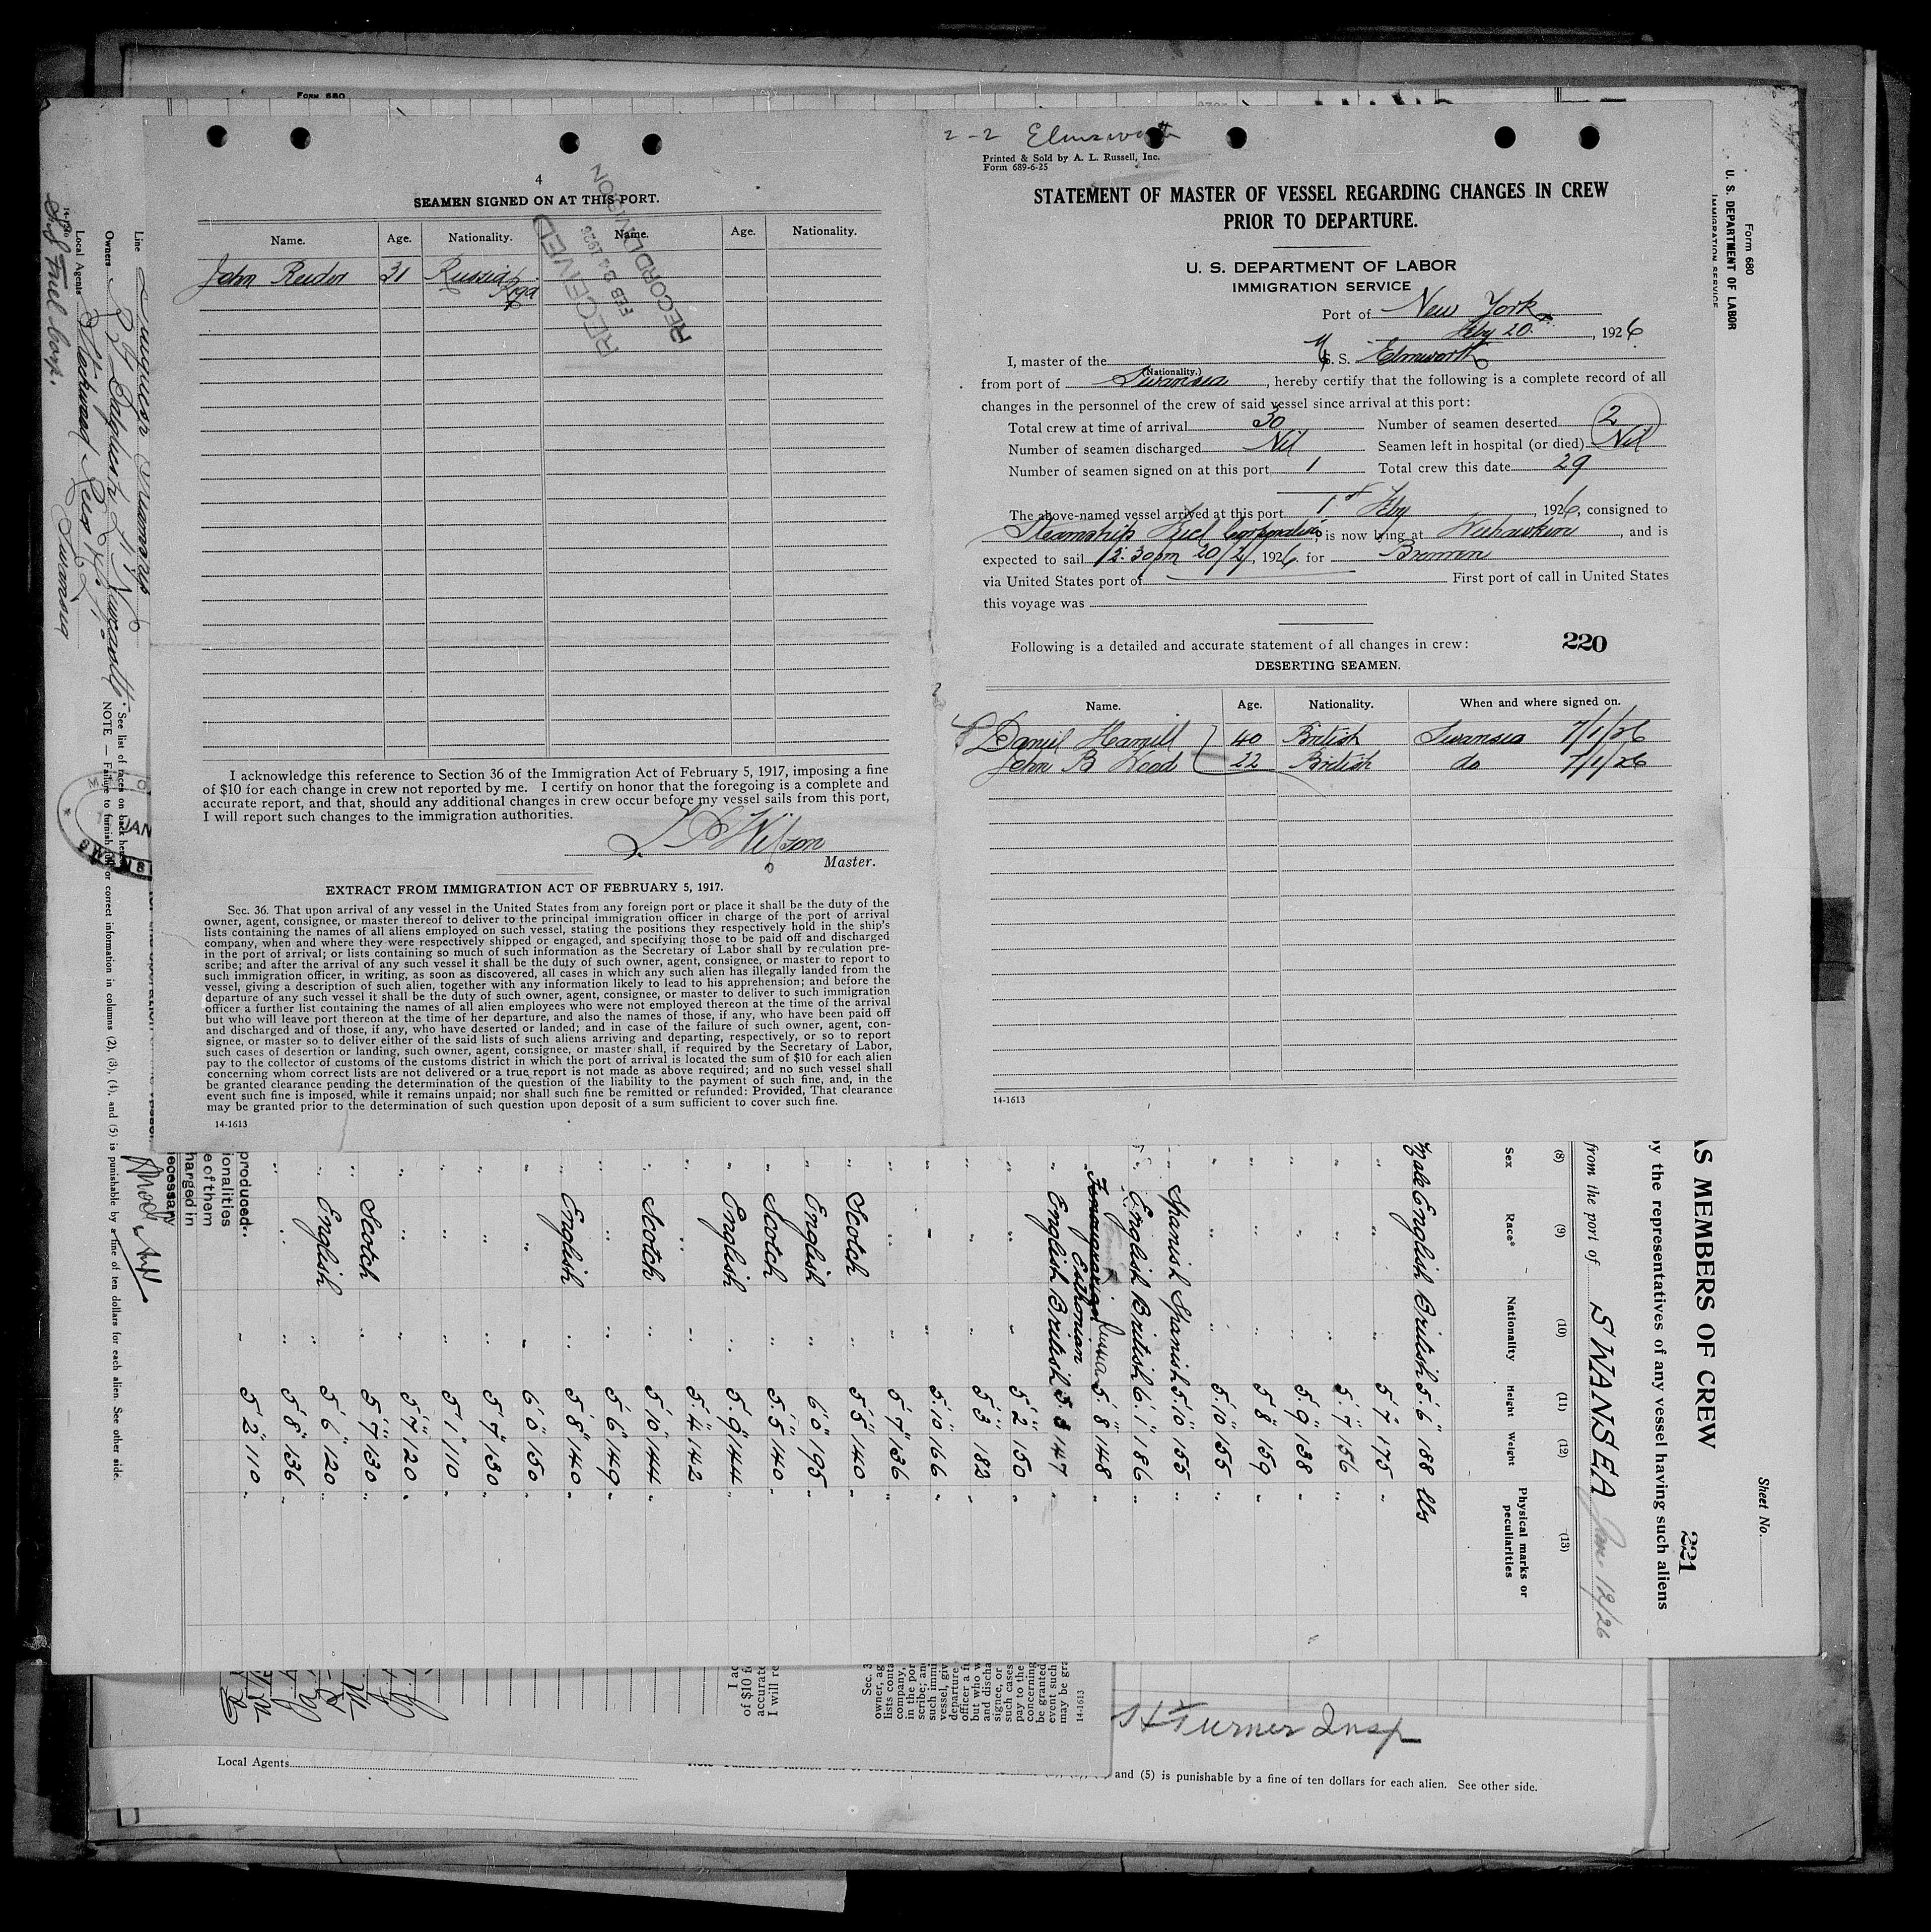 4
SEAMEN SIGNED ON AT THIS PORT.
Name. Age. Nationality. Name. Age. Nationality.
John Reidor 31 Russia Riga
RECEIVED
FEB 24 1926
RECORD DIVISION
I acknowledge this reference to Section 36 of the Immigration Act of February 5, 1917, imposing a fine
of $10 for each change in crew not reported by me. I certify on honor that the foregoing is a complete and
accurate report, and that, should any additional changes in crew occur before my vessel sails from this port,
I will report such changes to the immigration authorities.
Wilson
Master.
EXTRACT FROM IMMIGRATION ACT OF FEBRUARY 5, 1917.
Sec. 36. That upon arrival of any vessel in the United States from any foreign port or place it shall be the duty of the
owner, agent, consignee, or master thereof to deliver to the principal immigration officer in charge of the port of arrival
lists containing the names of all aliens employed on such vessel, stating the positions they respectively hold in the ship's
company, when and where they were respectively shipped or engaged, and specifying those to be paid off and discharged
in the port of arrival; or lists containing so much of such information as the Secretary of Labor shall by regulation pre-
scribe; and after the arrival of any such vessel it shall be the duty of such owner, agent, consignee, or master to report to
such immigration officer, in writing, as soon as discovered, all cases in which any such alien has illegally landed from the
vessel, giving a description of such alien, together with any information likely to lead to his apprehension; and before the
departure of any such vessel it shall be the duty of such owner, agent, consignee, or master to deliver to such immigration
officer a further list containing the names of all alien employees who were not employed thereon at the time of the arrival
but who will leave port thereon at the time of her departure, and also the names of those, if any, who have been paid off
and discharged and of those, if any, who have deserted or landed; and in case of the failure of such owner, agent, con-
signee, or master so to deliver either of the said lists of such aliens arriving and departing, respectively, or so to report
such cases of desertion or landing, such owner, agent, consignee, or master shall, if required by the Secretary of Labor,
pay to the collector of customs of the customs district in which the port of arrival is located the sum of $10 for each alien
concerning whom correct lists are not delivered or a true report is not made as above required; and no such vessel shall
be granted clearance pending the determination of the question of the liability to the payment of such fine, and, in the
event such fine is imposed, while it remains unpaid; nor shall such fine be remitted or refunded: Provided, That clearance
may be granted prior to the determination of such question upon deposit of a sum sufficient to cover such fine.
14-1613
2-2 Elmsworth
Printed & Sold by A. L. Russell, Inc.
Form 689-6-25
STATEMENT OF MASTER OF VESSEL REGARDING CHANGES IN CREW
PRIOR TO DEPARTURE.
U. S. DEPARTMENT OF LABOR
IMMIGRATION SERVICE
Port of New York
Feby 20. , 1926
I, master of the S. S. Elmworth
(Nationality.)
from port of Swansea , hereby certify that the following is a complete record of all
changes in the personnel of the crew of said vessel since arrival at this port:
Total crew at time of arrival 30 Number of seamen deserted 2
Number of seamen discharged Nil Seamen left in hospital (or died) Nil
Number of seamen signed on at this port 1 Total crew this date 29
The above-named vessel arrived at this port 1st Feby , 1926, consigned to
Steamship Fuel Corporation, is now lying at Weehawken , and is
expected to sail 12.30pm 20/2/, 1926. for Bremen
via United States port of First port of call in United States
this voyage was
Following is a detailed and accurate statement of all changes in crew: 220
DESERTING SEAMEN.
Name. Age. Nationality. When and where signed on.
Daniel Hamill 40 British Swansea 7/1/26
John B Wood 22 British do 7/1/26
14-1613
Form 680
U. S. DEPARTMENT OF LABOR
IMMIGRATION SERVICE
Sheet No.
221
AS MEMBERS OF CREW
by the representatives of any vessel having such aliens
from the port of SWANSEA Jan 12/26
(8) (9) (10) (11) (12) (13)
Sex Race* Nationality Height Weight Physical marks or peculiarities
Male English British 5.6" 188 lbs
" " " 5.7" 175 "
" " " 5.7" 156 "
" " " 5.9" 138 "
" " " 5.8" 159 "
" " " 5.10" 155 "
" Spanish Spanish 5.10" 155 "
" English British 6.1" 186 "
" Estonian Russia 5.8" 148 "
" English British 5.8 147 "
" " " 5'2" 150 "
" " " 5'3" 182 "
" " " 5.10" 166 "
" " " 5'7" 136 "
" Scotch " 5'5" 140 "
" English " 6'0" 195 "
" Scotch " 5'.5" 140 "
" English " 5'.9" 144 "
" " " 5'.4" 142 "
" Scotch " 5'10" 144 "
" " " 5'6" 149 "
" English " 5'8" 140 "
" " " 6'0" 150 "
" " " 5'7" 130 "
" " " 5'1" 110 "
" " " 5'7" 120 "
" Scotch " 5'7" 130 "
" English " 5'6" 120 "
" " " 5'8" 136 "
" 5'2" 110 "
produced.
ionalities
e of them
harged in
ecessary
Line
Owners R S Dalgliesh Ltd Newcastle
Local Agents Lockwood Swansea
S.S Fuel Corp.
* See list of races on back hereof
NOTE.—Failure to furnish full or correct information in columns (2), (3), (4), and (5) is punishable by a fine of ten dollars for each alien. See other side.
JAN
H Turner Insp
Local Agents
and (5) is punishable by a fine of ten dollars for each alien. See other side.